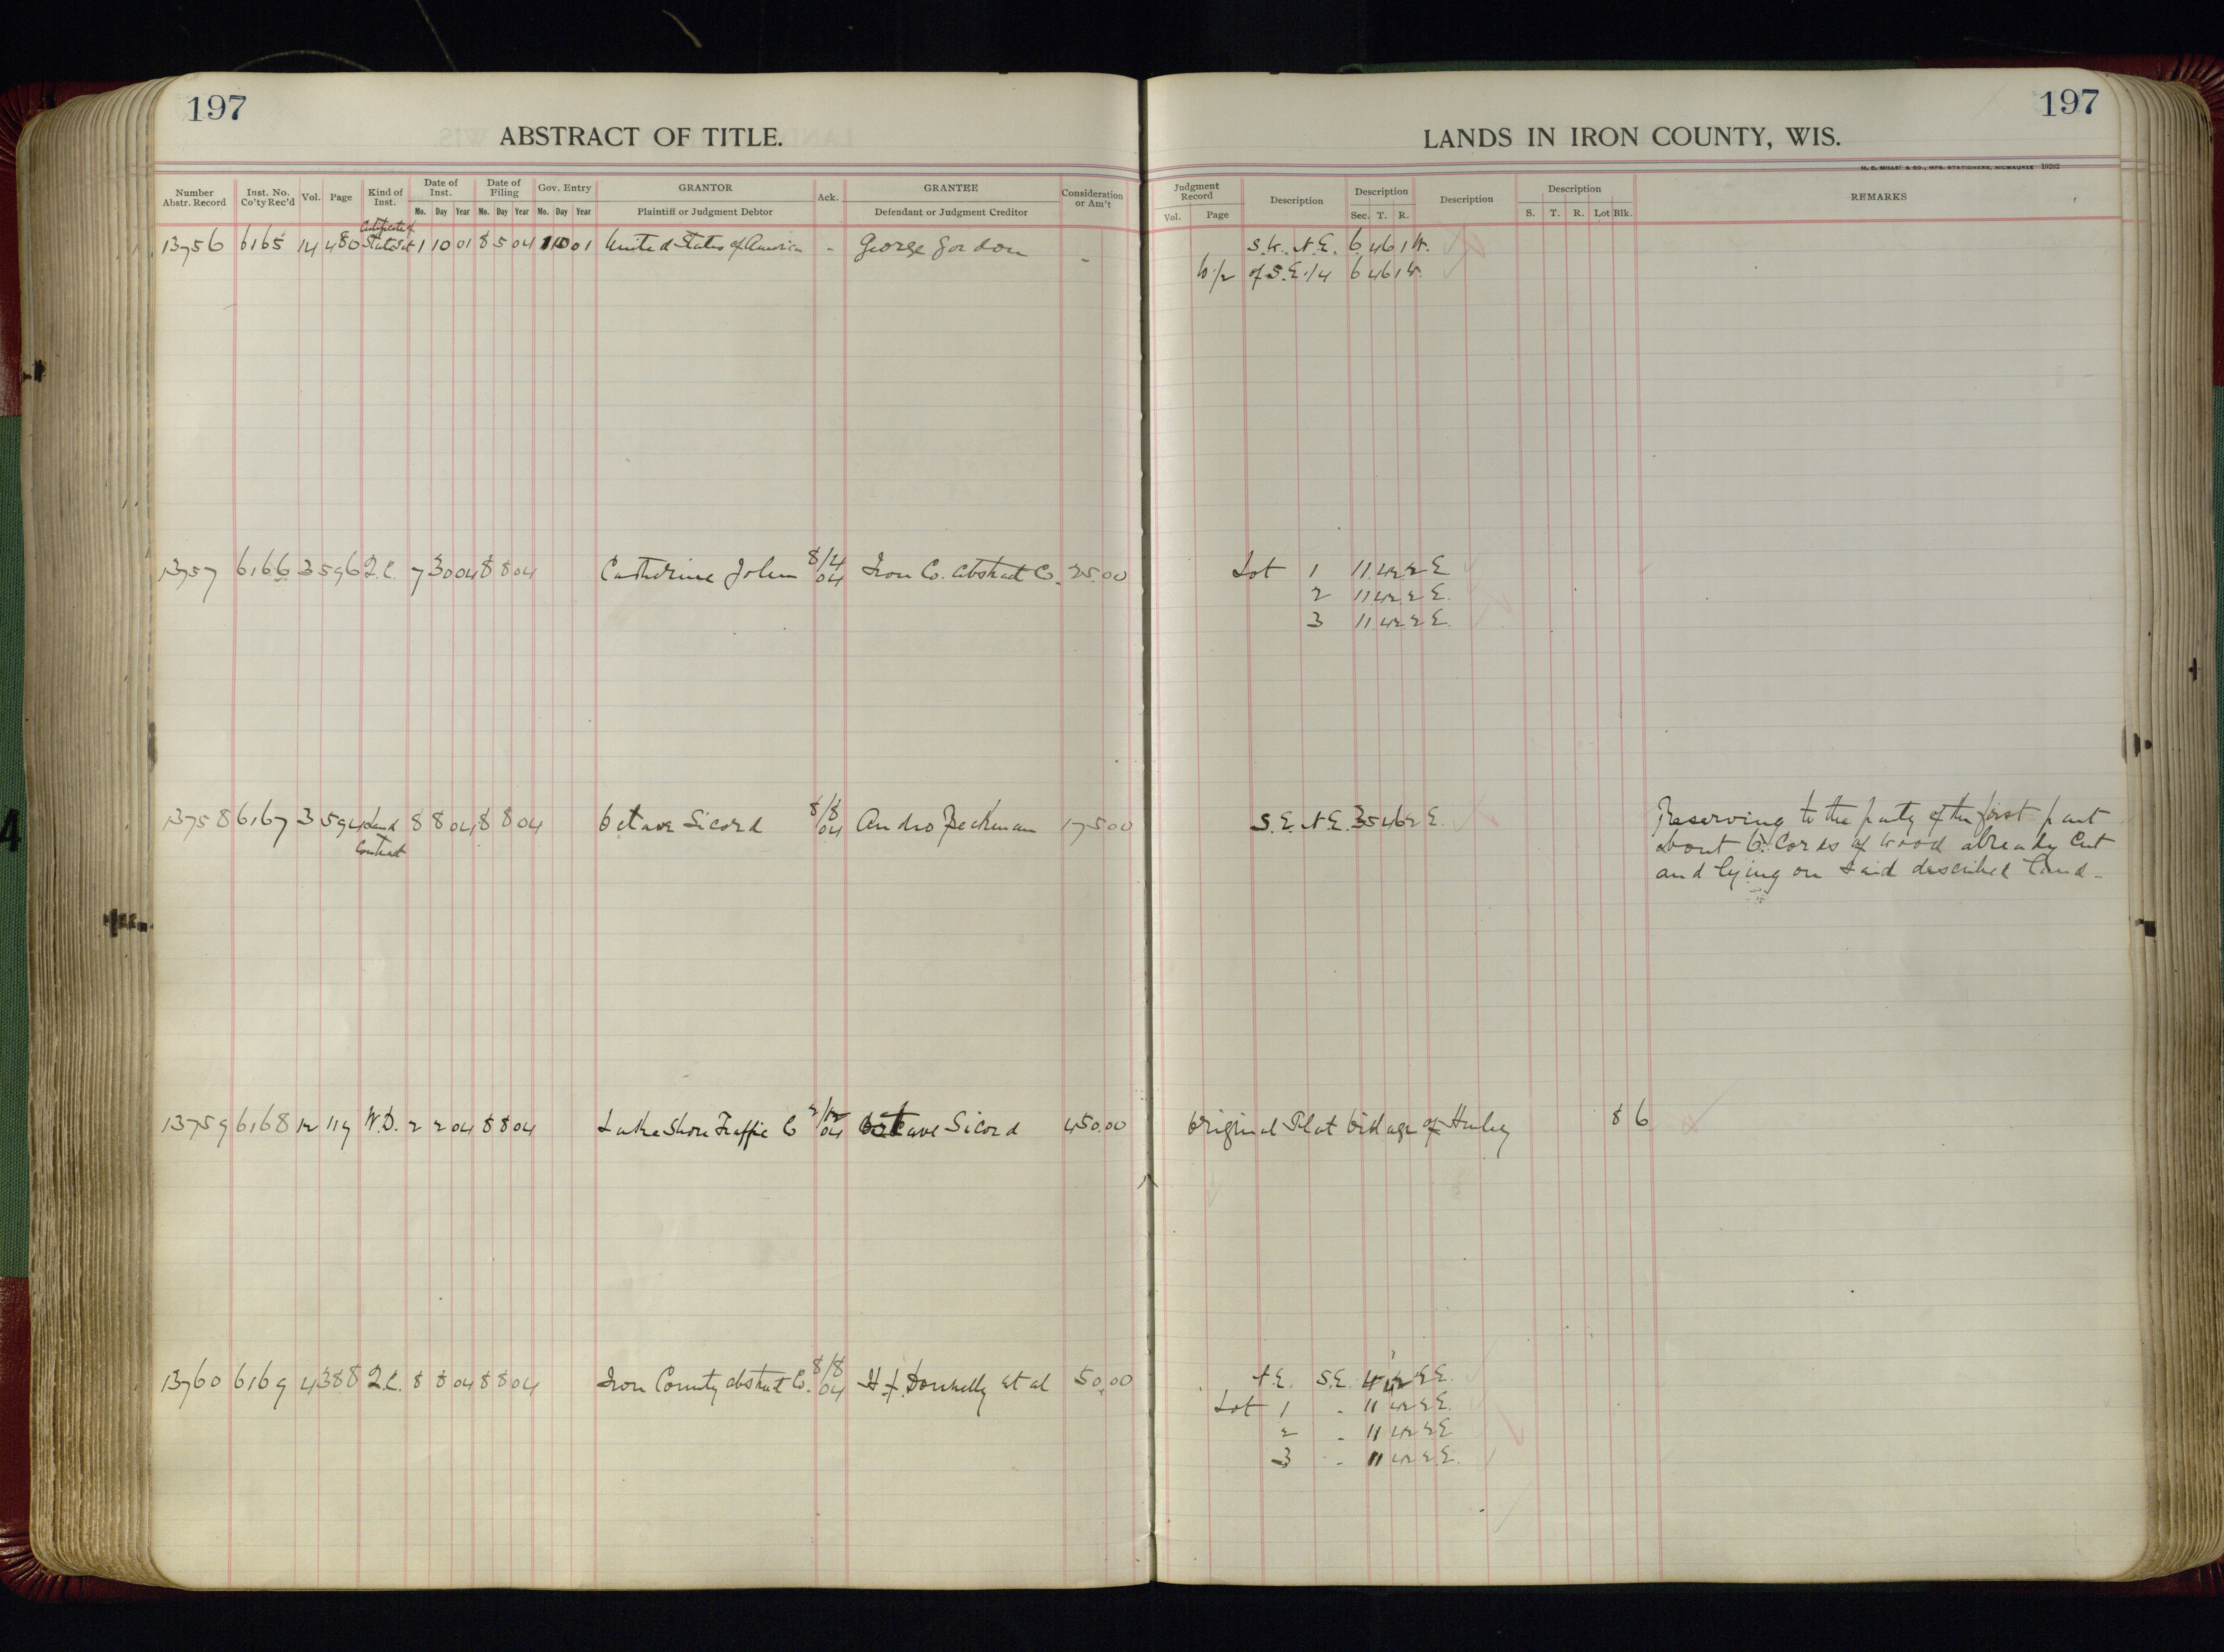 197
ABSTRACT OF TITLE.
Number Abstr. Record | Inst. No. Co'ty Rec'd | Vol. | Page | Kind of Inst. | Date of Inst. Mo. Day Year | Date of Filing Mo. Day Year | Gov. Entry Mo. Day Year | GRANTOR Plaintiff or Judgment Debtor | Ack. | GRANTEE Defendant or Judgment Creditor | Consideration or Am't
Certificate of
13756 6165 14 480 1 10 01 8 5 04 1 10 01 United States of America - George Gordon -
13757 6166 3 596 Q.C. 7 30 04 8 8 04 Catherine John 8/4 04 Iron Co. Abstract Co. 25.00
13758 6167 3 594 Land 8 8 04 8 8 04 Octave Sicord 8/8 04 Andro Beckman 175 00
Contract
13759 6168 12 119 W.D. 2 2 04 8 8 04 Lake Shore Traffic Co 2/12 04 Octave Sicord 450.00
13760 6169 4 388 Q.C. 8 8 04 8 8 04 Iron County Abstract Co. 8/8 04 H. F. Donnelly et al 50.00
197
LANDS IN IRON COUNTY, WIS.
H. C. MILLER CO., MFG. STATIONERS, MILWAUKEE 19282
Judgment Record Vol. Page | Description | Description Sec. T. R. | Description | Description S. T. R. Lot Blk. | REMARKS
S.W. N.E. 6 46 1 W.
W 1/2 of S.E. 1/4 6 46 1 W.
Lot 1 11 42 2 E
2 11 42 2 E.
3 11 42 2 E.
S.E. N.E. 35 46 2 E. Reserving to the party of the first part
about 6 Cords of wood already Cut
and lying on said described land -
Original Plat Village of Hurley 8 6
N.E. S.E. 4 42 2 E.
Lot 1 - 11 42 2 E.
2 - 11 42 2 E
3 - 11 42 2 E.